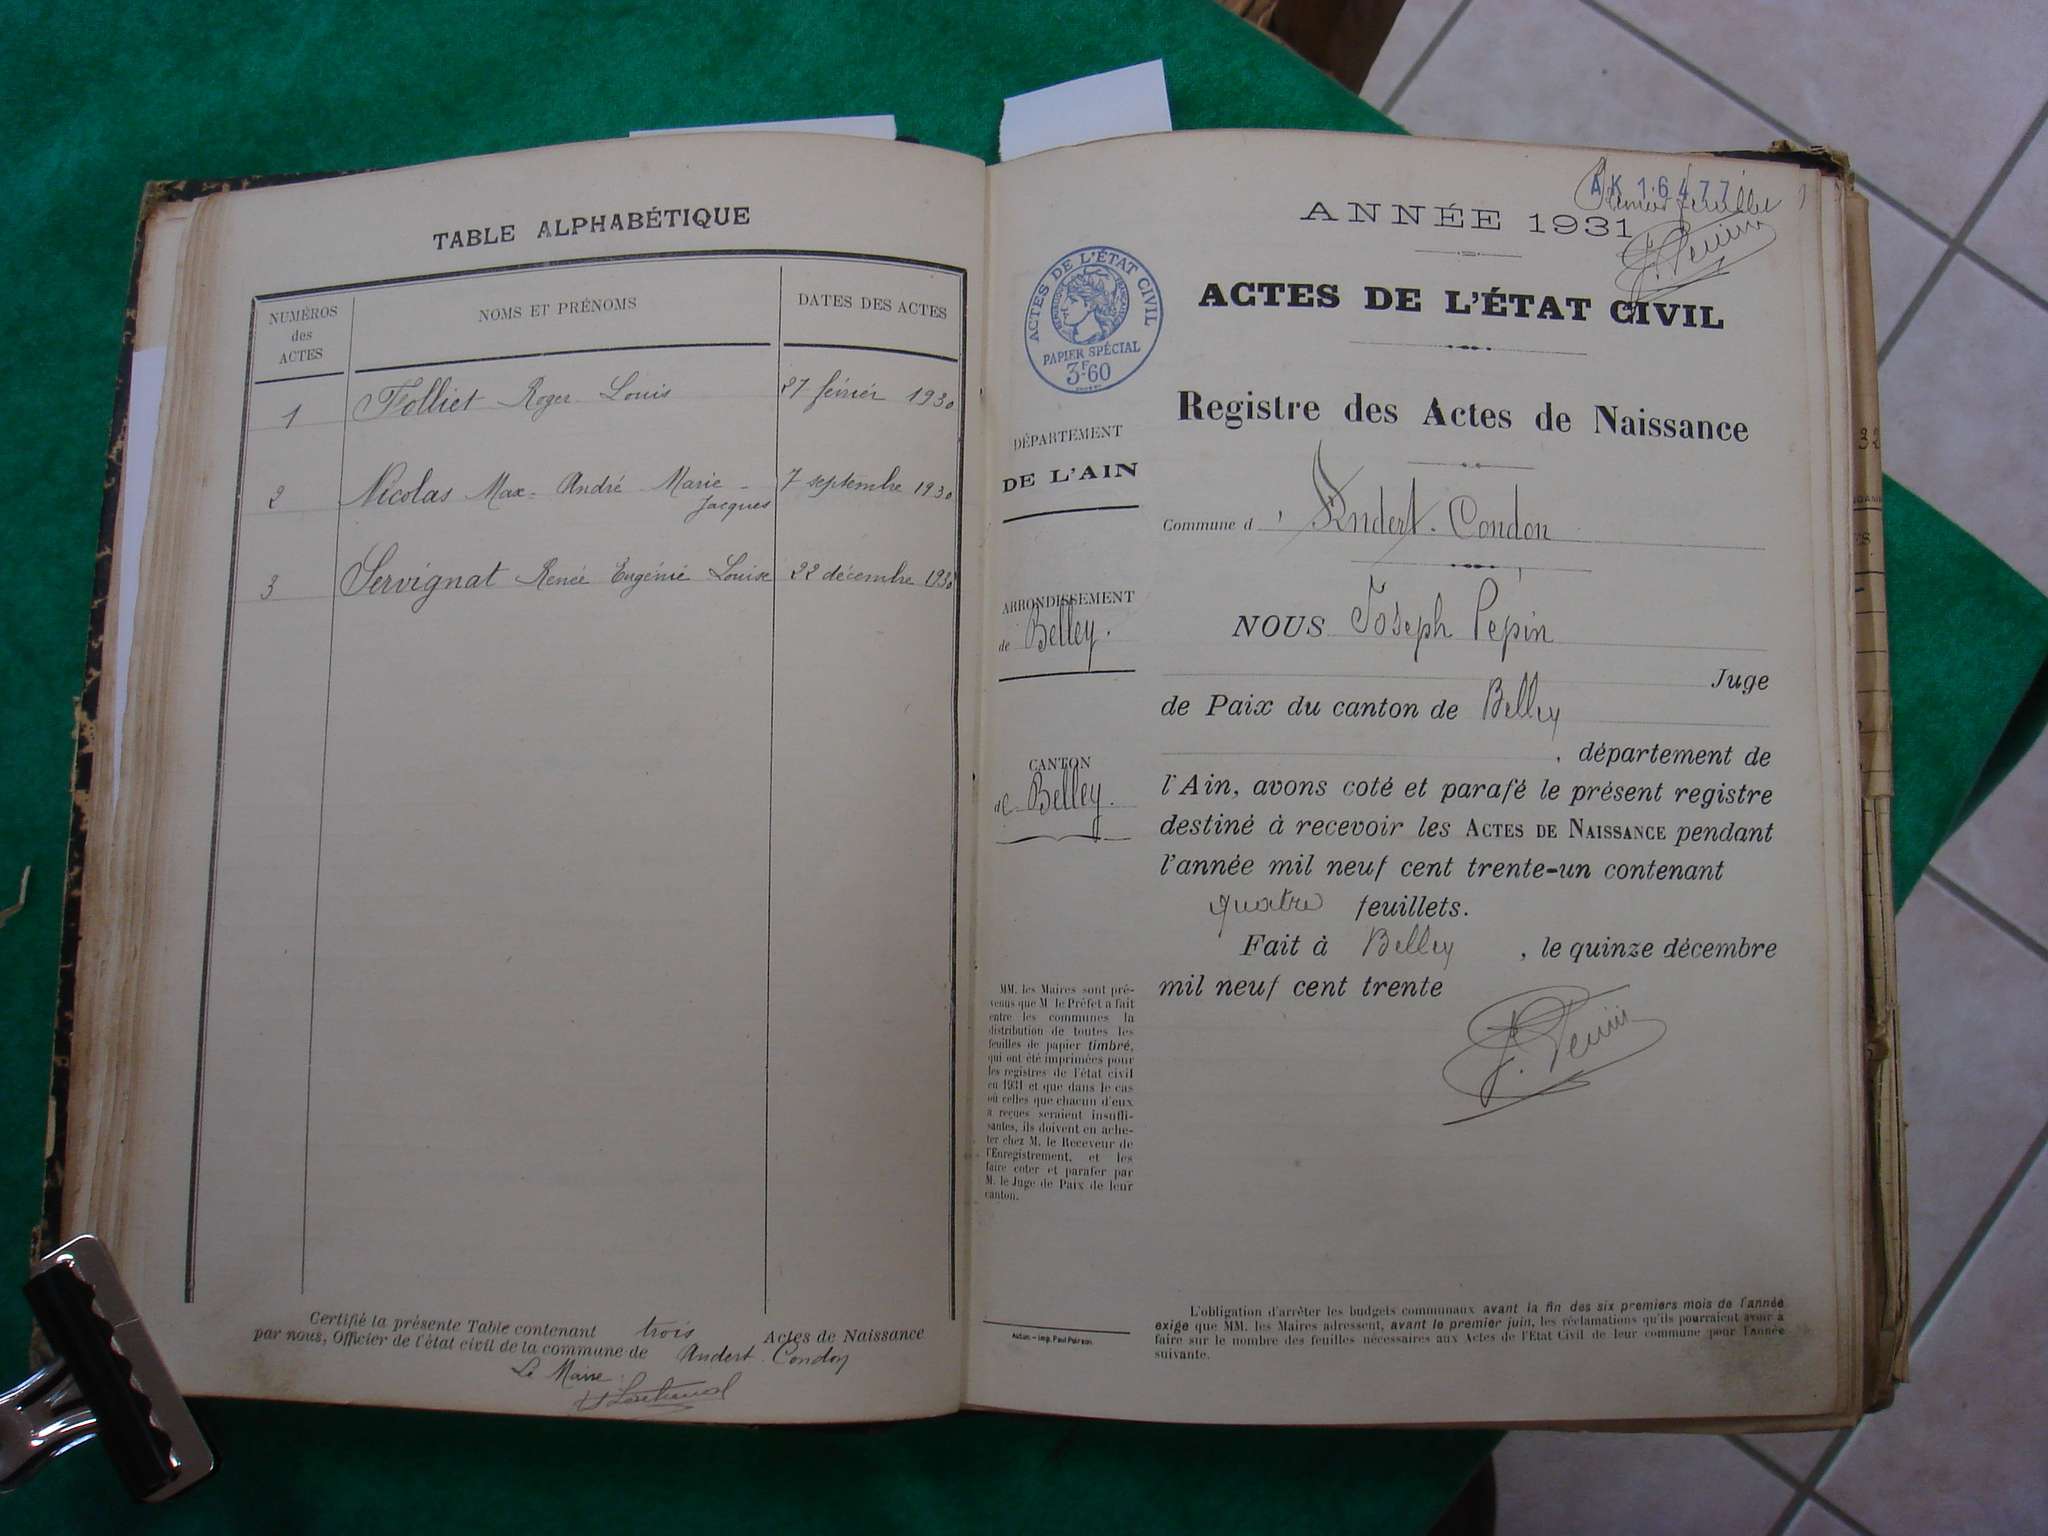 TABLE ALPHABÉTIQUE
NUMÉROS
des
ACTES
NOMS ET PRÉNOMS
DATES DES ACTES
1 Folliet Roger Louis 27 février 1930
2 Nicolas Max-André Marie-
Jacques 7 septembre 1930
3 Servignat Renée Eugénie Louise 22 décembre 1930
Certifié la présente Table contenant trois Actes de Naissance
par nous, Officier de l'état civil de la commune de Andert-Condon
Le Maire
AK 16477
Premier feuillet
ANNÉE 1931
J. Pépin
ACTES DE L'ÉTAT CIVIL
ACTES DE L'ÉTAT CIVIL
RÉPUBLIQUE FRANÇAISE
PAPIER SPÉCIAL
3F.60
Registre des Actes de Naissance
DÉPARTEMENT
DE L'AIN
Commune d' Andert-Condon
ARRONDISSEMENT
de Belley.
NOUS Joseph Pépin
Juge
de Paix du canton de Belley
, département de
CANTON
de Belley.
l'Ain, avons coté et parafé le présent registre
destiné à recevoir les ACTES DE NAISSANCE pendant
l'année mil neuf cent trente-un contenant
quatre feuillets.
Fait à Belley, le quinze décembre
mil neuf cent trente
J. Pépin
MM. les Maires sont pré-
venus que M. le Préfet a fait
entre les communes la
distribution de toutes les
feuilles de papier timbré,
qui ont été imprimées pour
les registres de l'état civil
en 1931 et que dans le cas
où celles que chacun d'eux
a reçues seraient insuffi-
santes, ils doivent en ache-
ter chez M. le Receveur de
l'Enregistrement, et les
faire coter et parafer par
M. le Juge de Paix de leur
canton.
L'obligation d'arrêter les budgets communaux avant la fin des six premiers mois de l'année
exige que MM. les Maires adressent, avant le premier juin, les réclamations qu'ils pourraient avoir à
faire sur le nombre des feuilles nécessaires aux Actes de l'Etat Civil de leur commune pour l'année
suivante.